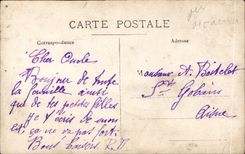 CARTE POSTALE
Correspondance
Adresse
Cher Oncle
Bonjour de toute
la famille ainsi
que de tes petites filles
Je t'écris de mon
et ça ne va pas fort.
Bons baisers
Monsieur A.
St Gobain
Aisne